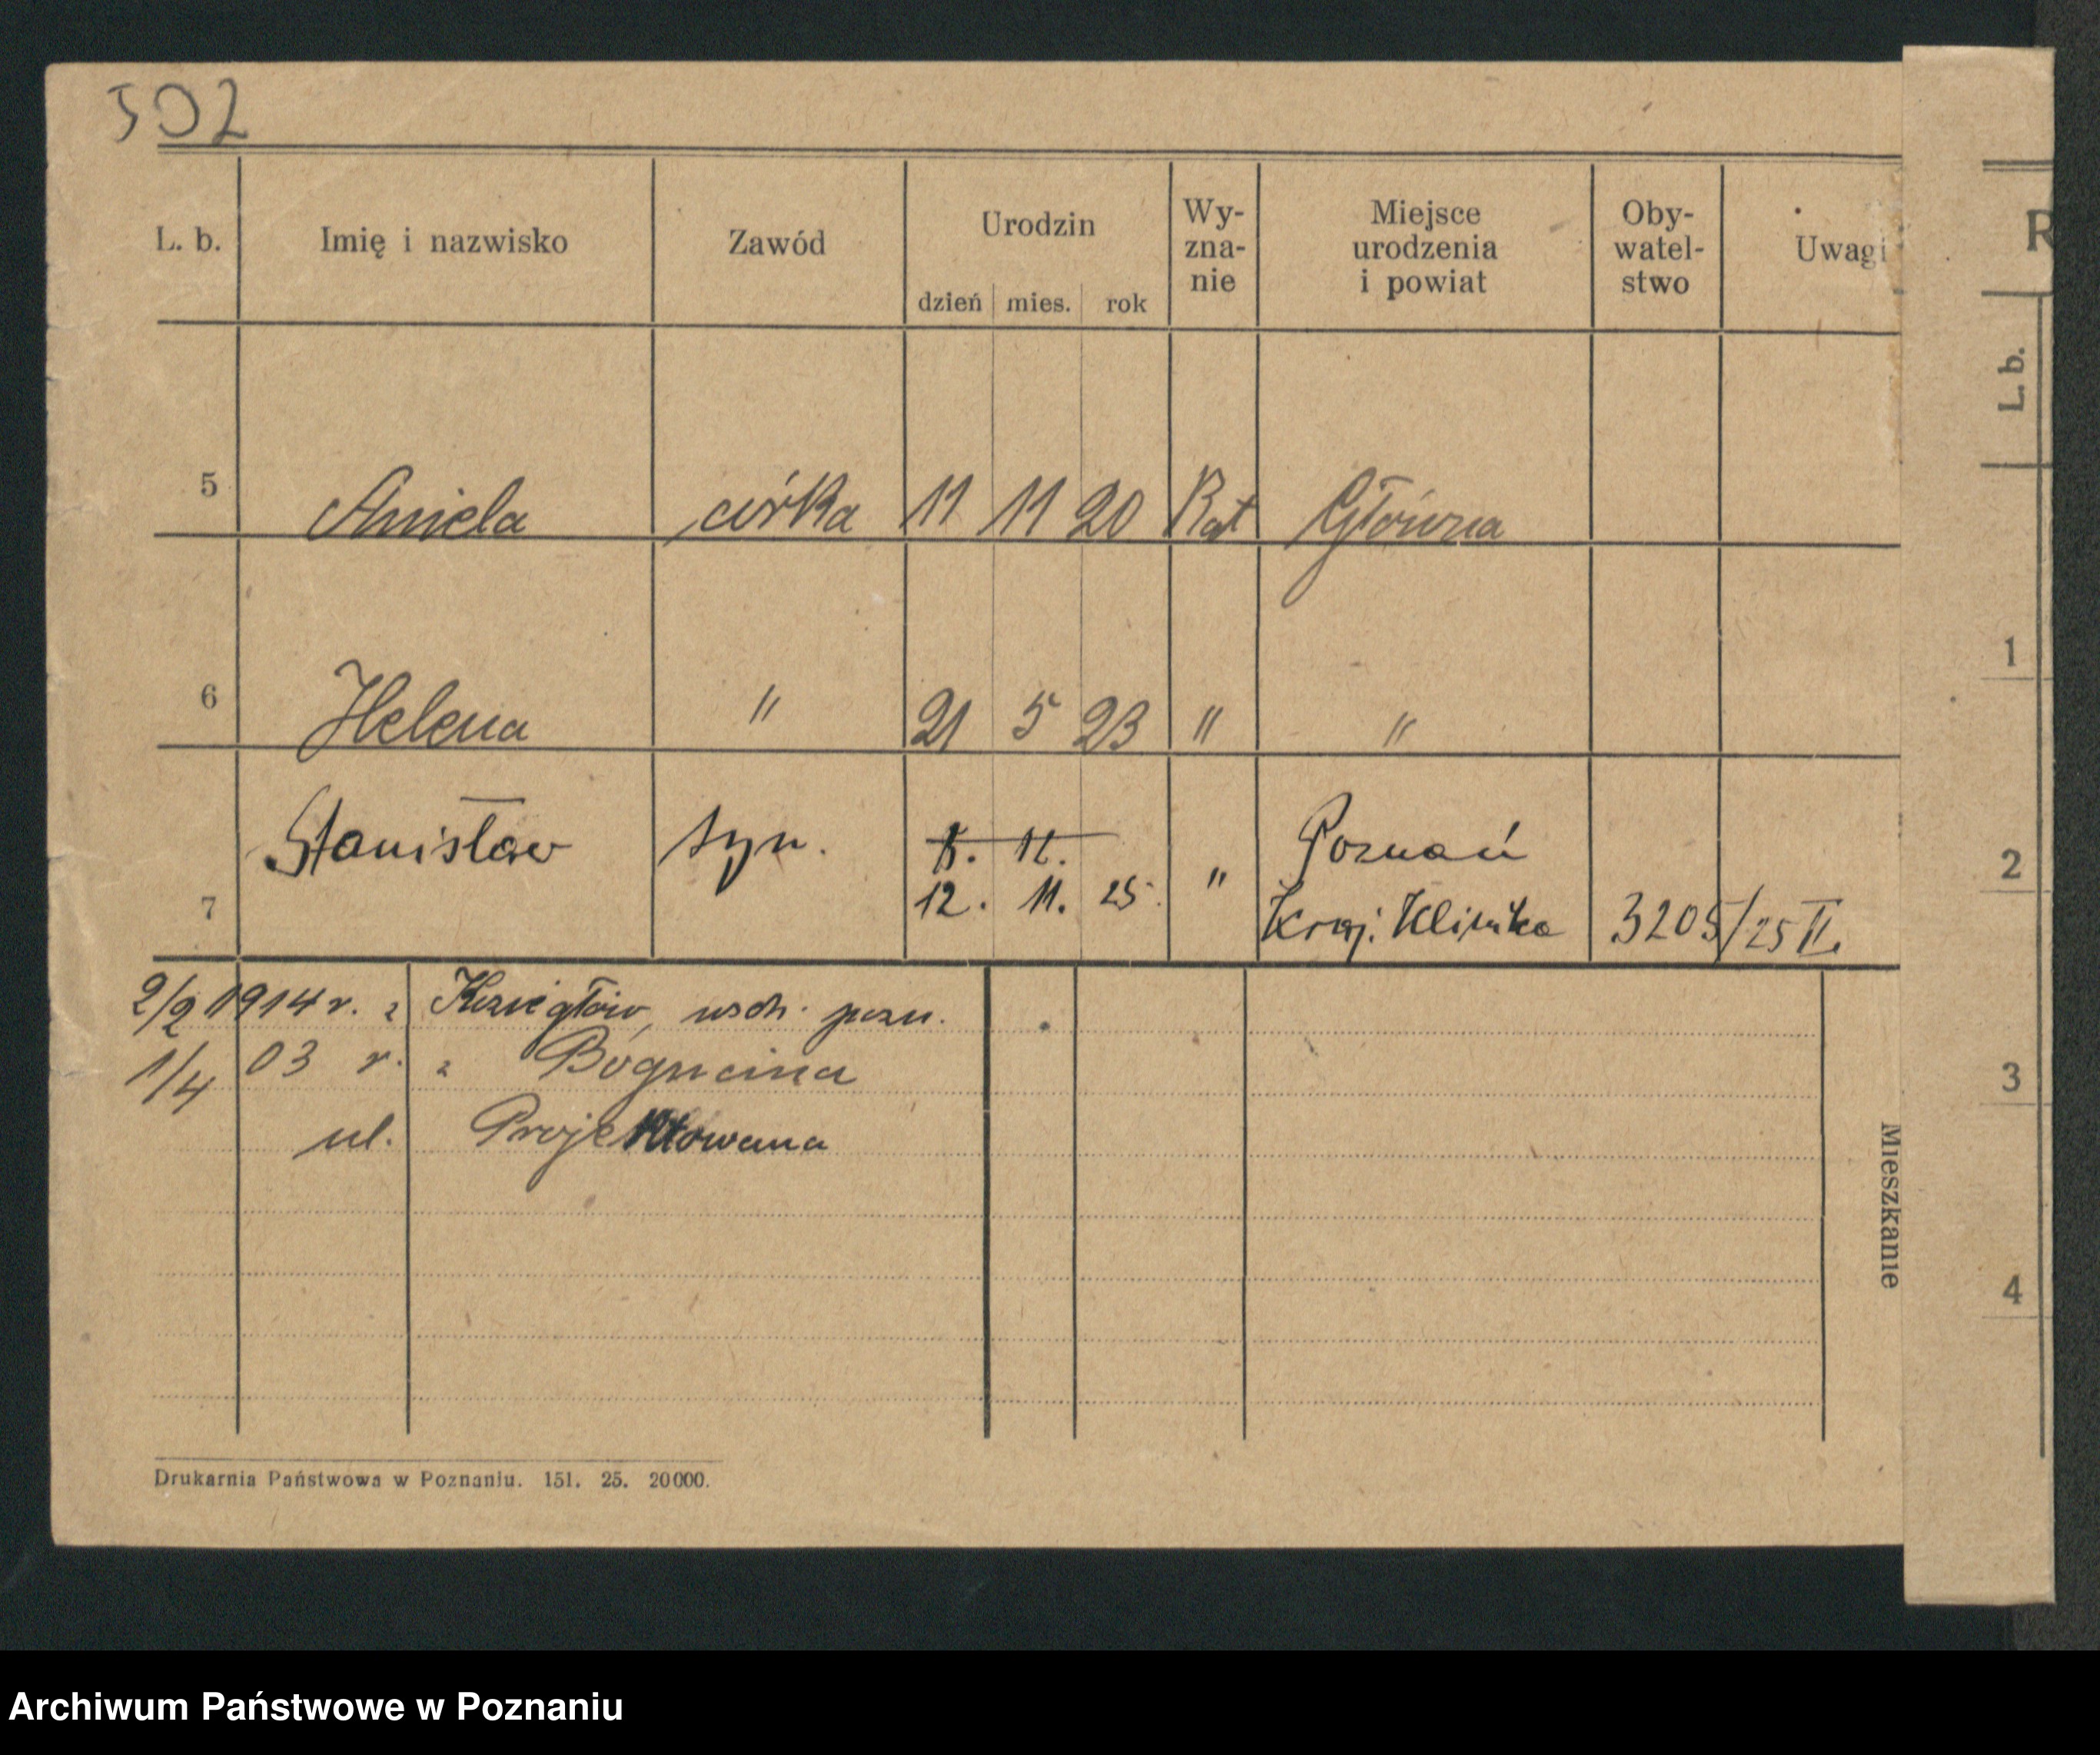 502
L. b. Imię i nazwisko Zawód Urodzin Wy- Miejsce Oby- Uwagi
zna- urodzenia watel-
dzień mies. rok nie i powiat stwo
5 Aniela córka 11 11 20 Kat Główna
6 Helena " 21 5 23 " "
Stanisław syn. 11. Poznań
7 12. 11. 25. " Kraj. Klinika 3205/25 II.
2/2 1914 r. z Koziegłów, wsch. pozn.
1/4 03 r. z Bogucina
ul. Projektowana
Mieszkanie
Drukarnia Państwowa w Poznaniu. 151. 25. 20000.
R
L. b.
1
2
3
4
Archiwum Państwowe w Poznaniu